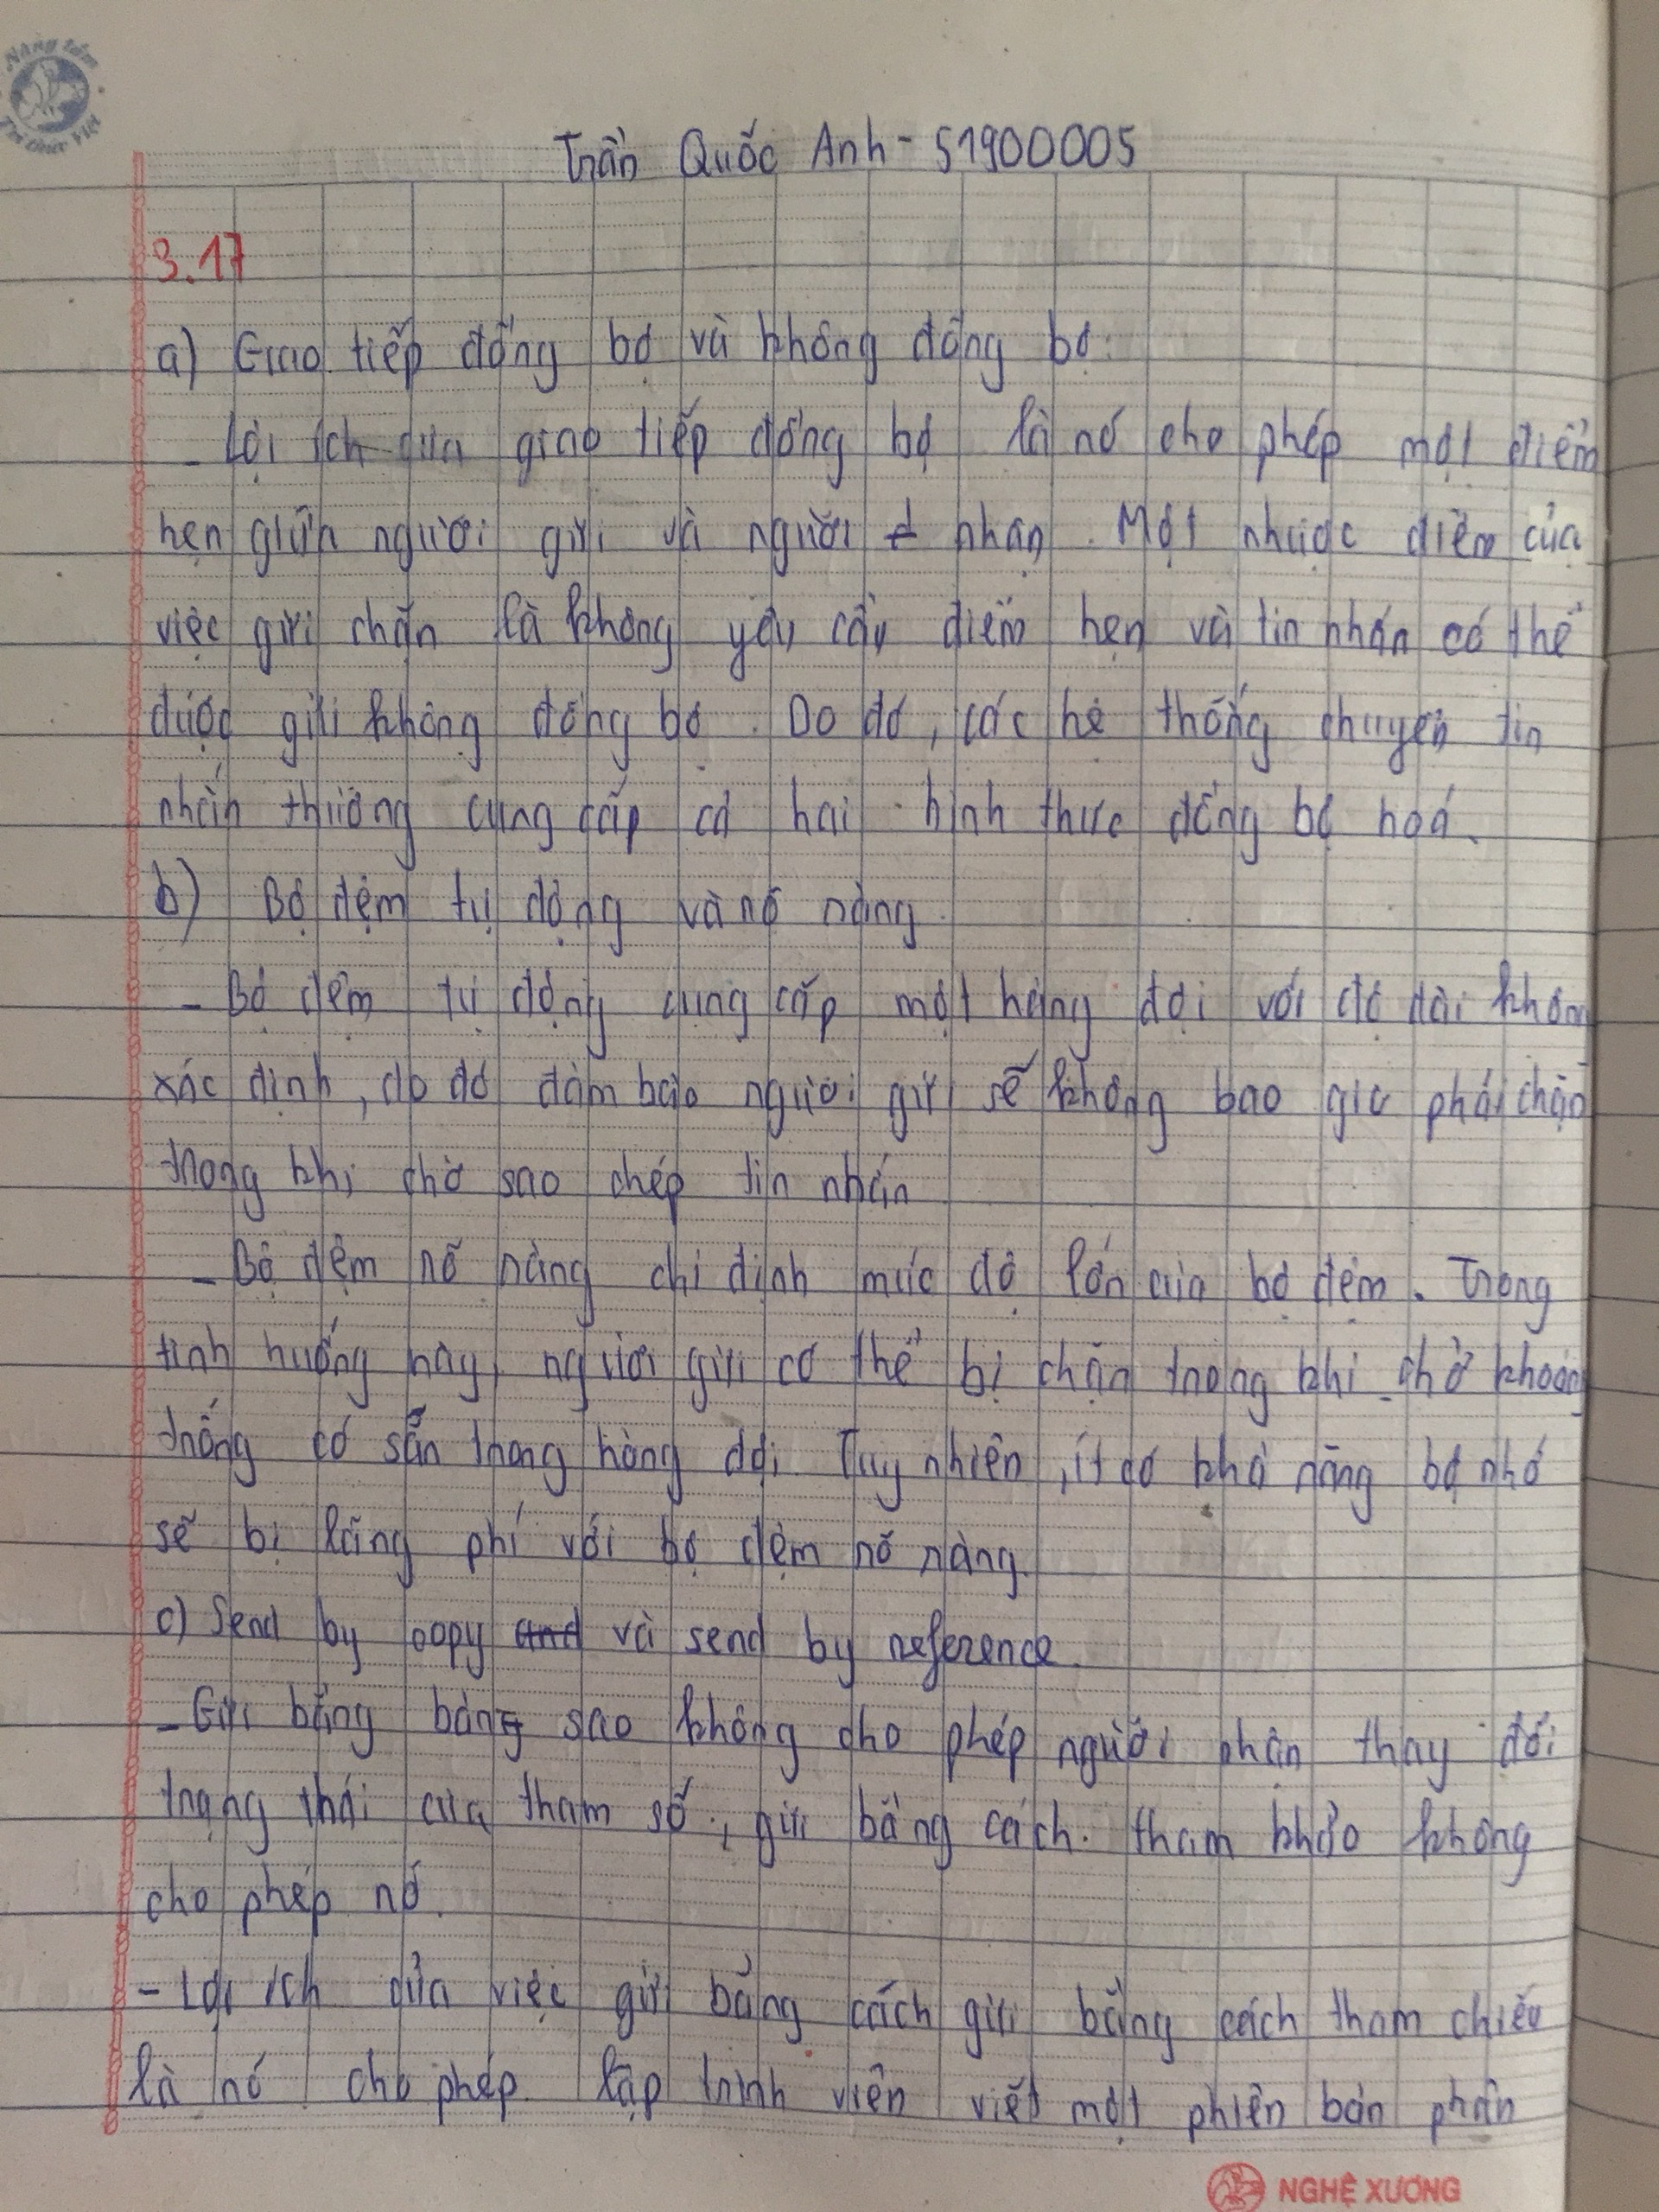 Nâng tầm
Tri thức Việt
Trần Quốc Anh - 51900005
3.17
a) Giao tiếp đồng bộ và không đồng bộ.
- Lợi ích của giao tiếp đồng bộ là nó cho phép một điểm
hẹn giữa người gửi và người nhận. Một nhược điểm của
việc gửi chặn là không yêu cầu điểm hẹn và tin nhắn có thể
được gửi không đồng bộ. Do đó, các hệ thống chuyển tin
nhắn thường cung cấp cả hai hình thức đồng bộ hoá.
b) Bộ đệm tự động và nõ nàng
- Bộ đệm tự động cung cấp một hàng đợi với độ dài khôn
xác định, do đó đảm bảo người gửi sẽ không bao giờ phải chặn
trong khi chờ sao chép tin nhắn
- Bộ đệm nõ nàng chỉ định mức độ lớn của bộ đệm. Trong
tình huống này, người gửi có thể bị chặn trong khi chờ khoảng
trống có sẵn trong hàng đợi. Tuy nhiên, ít có khả năng bộ nhớ
sẽ bị lãng phí với bộ đệm nõ nàng.
c) Send by copy and và send by reference.
- Gửi bằng bảng sao không cho phép người nhận thay đổi
trạng thái của tham số, gửi bằng cách tham khảo không
cho phép nó.
- Lợi ích của việc gửi bằng cách gửi bằng cách tham chiếu
là nó cho phép lập trình viên viết một phiên bản phân
NGHỆ XƯƠNG